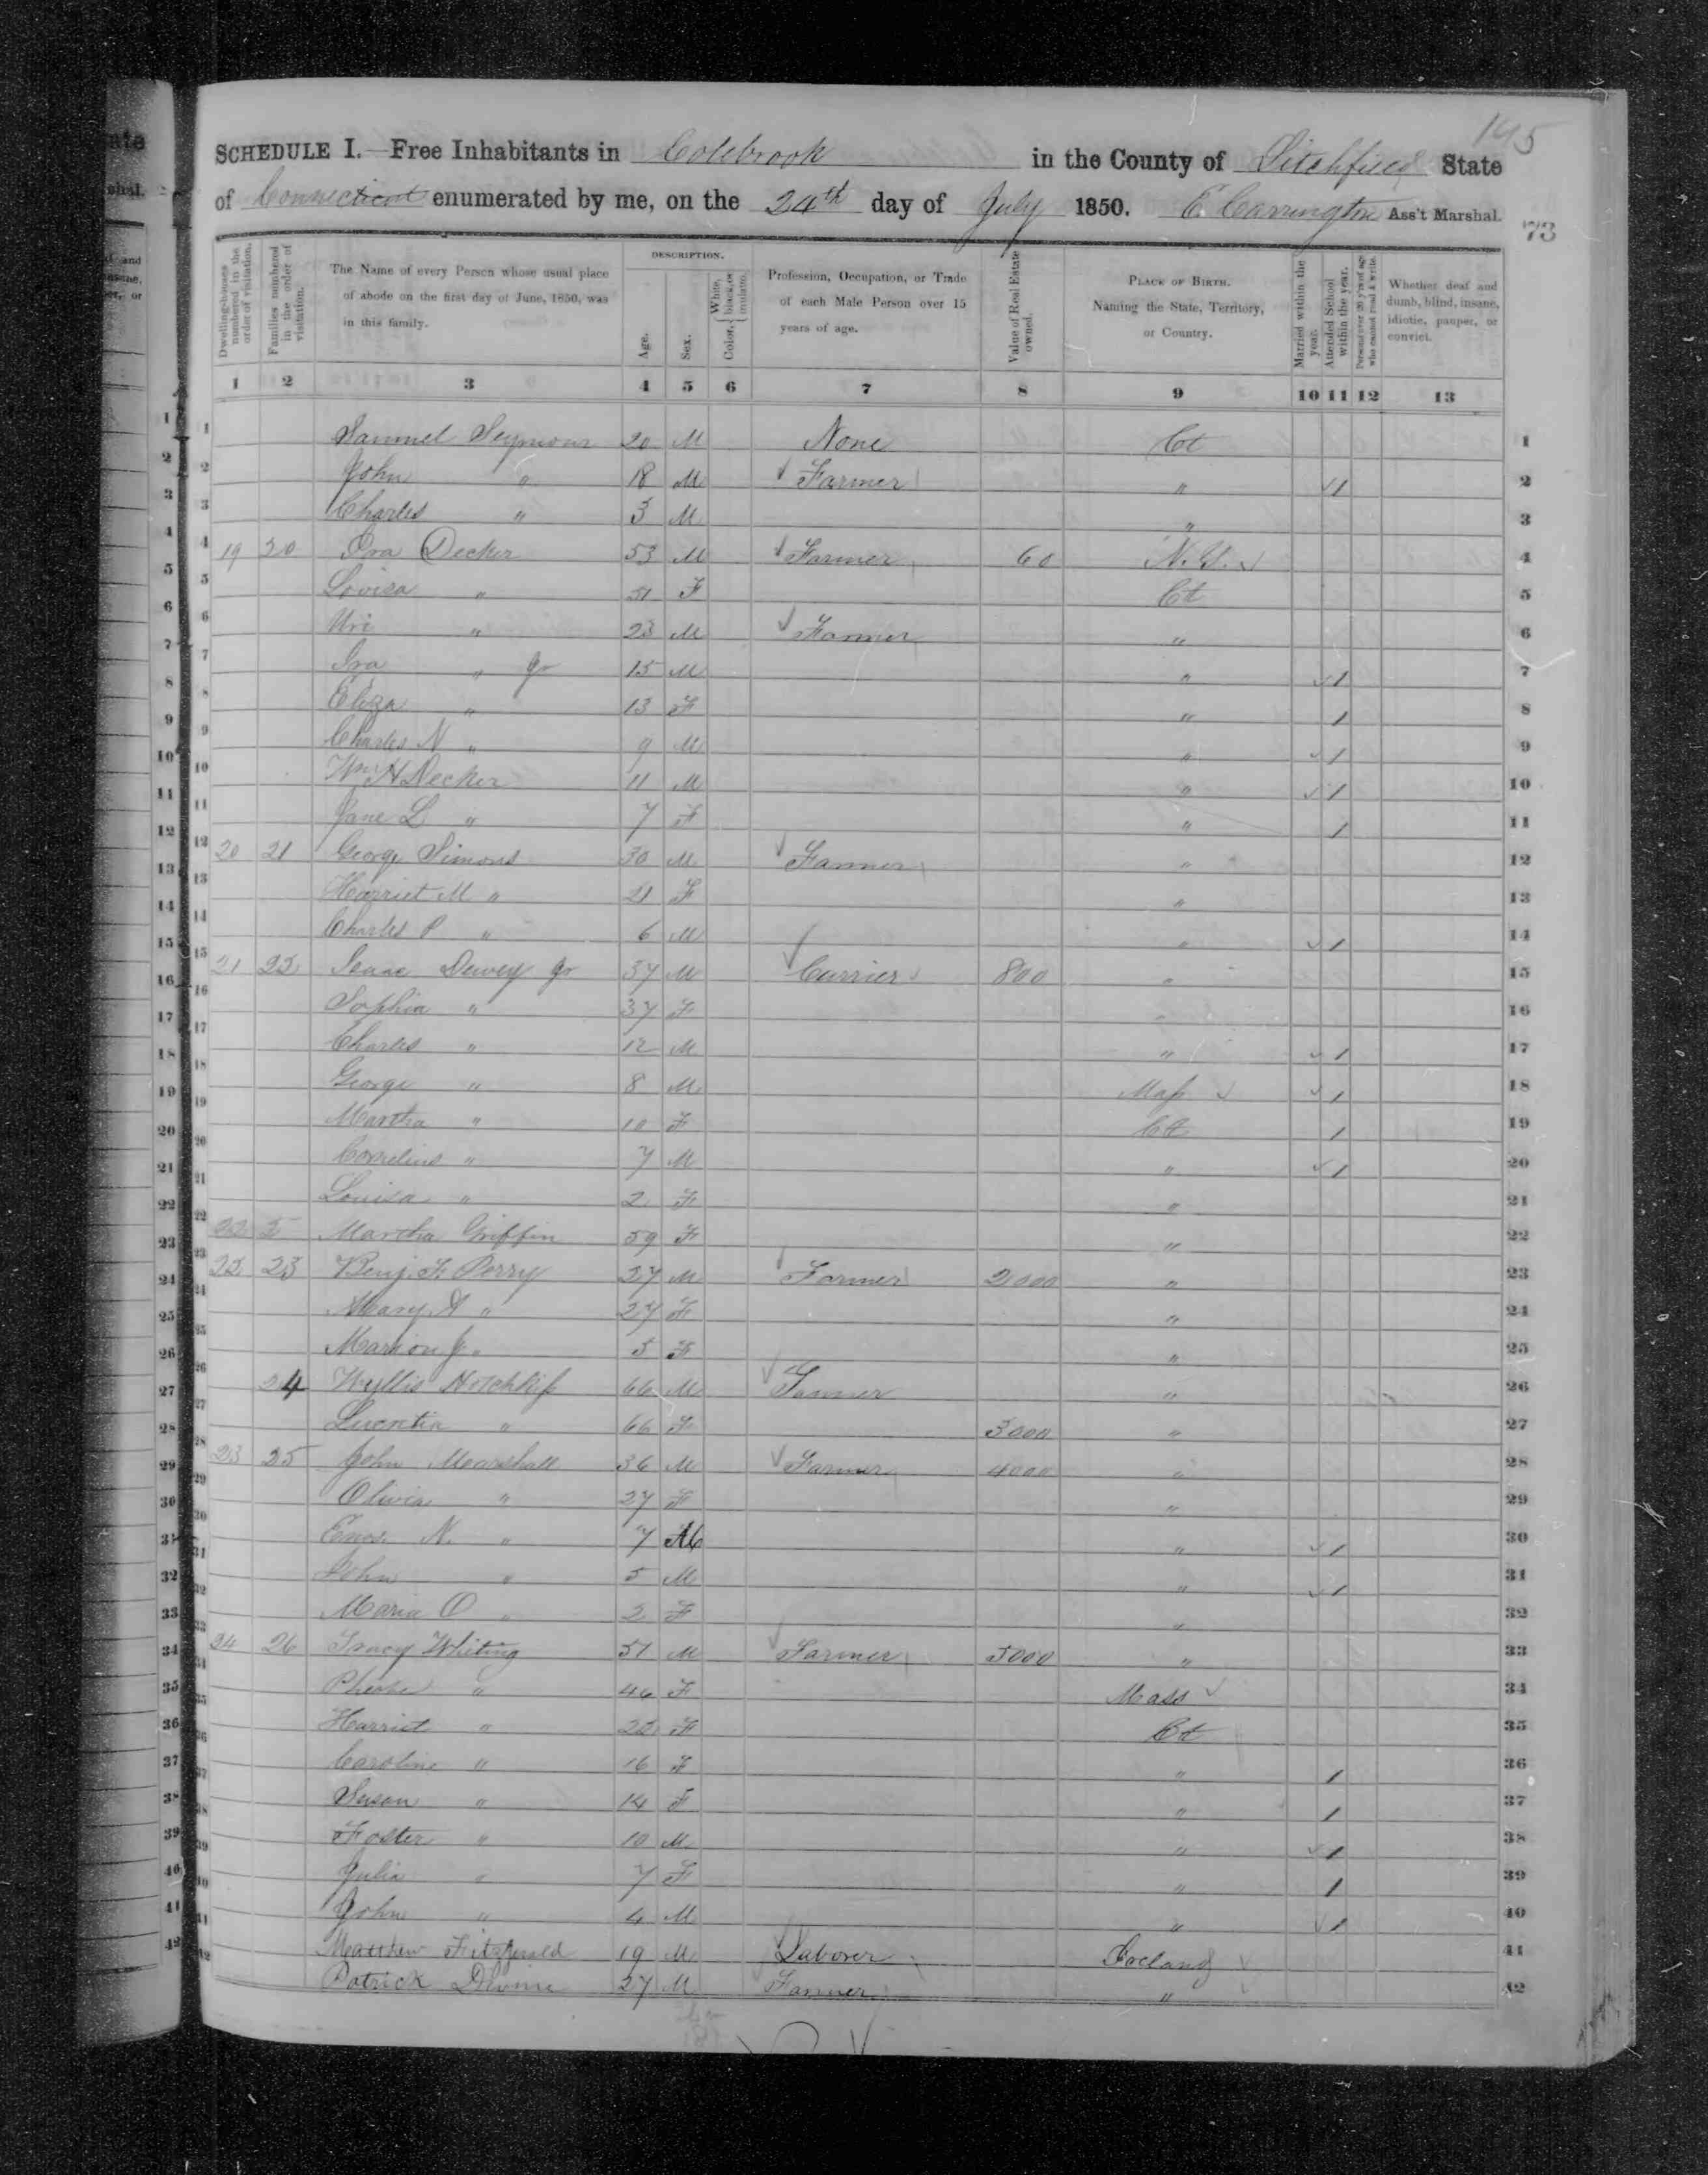 195
SCHEDULE I. Free Inhabitants in Colebrook in the County of Litchfield State
of Connecticut enumerated by me, on the 24th day of July 1850. E. Carrington Ass't Marshal.
73
Dwelling-houses numbered in the order of visitation.
Families numbered in the order of visitation.
The Name of every Person whose usual place of abode on the first day of June, 1850, was in this family.
DESCRIPTION.
Age.
Sex.
Color, { White, black, or mulatto.
Profession, Occupation, or Trade of each Male Person over 15 years of age.
Value of Real Estate owned.
PLACE OF BIRTH. Naming the State, Territory, or Country.
Married within the year.
Attended School within the year.
Persons over 20 y'rs of age who cannot read & write.
Whether deaf and dumb, blind, insane, idiotic, pauper, or convict.
1 2 3 4 5 6 7 8 9 10 11 12 13
1 Samuel Seymour 20 M None Ct 1
2 John " 18 M Farmer " 1 2
3 Charles " 3 M " 3
4 19 20 Ira Decker 53 M Farmer 60 N.Y. 4
5 Lovisa " 51 F Ct 5
6 Uri " 23 M Farmer " 6
7 Ira " Jr 15 M " 1 7
8 Eliza " 13 F " 1 8
9 Charles N " 9 M " 1 9
10 Wm H Decker 11 M " 1 10
11 Jane L " 7 F " 1 11
12 20 21 George Simons 30 M Farmer " 12
13 Harriet M " 21 F " 13
14 Charles P " 6 M " 1 14
15 21 22 Isaac Dewey Jr 37 M Currier 800 " 15
16 Sophia " 37 F " 16
17 Charles " 12 M " 1 17
18 George " 8 M Mass 1 18
19 Martha " 10 F Ct 1 19
20 Cornelius " 7 M " 1 20
21 Louisa " 2 F " 21
22 Martha Griffin 59 F " 22
23 22 23 Benj. F. Perry 27 M Farmer 2000 " 23
24 Mary A " 27 F " 24
25 Marion J " 5 F " 25
26 24 Wyllis Hotchkiss 66 M Farmer " 26
27 Lucretia " 66 F 3000 " 27
28 23 25 John Marshall 36 M Farmer 4000 " 28
29 Olivia " 27 F " 29
30 Enos N. " 7 M " 1 30
31 John " 5 M " 1 31
32 Maria O " 2 F " 32
33 24 26 Tracy Whiting 51 M Farmer 5000 " 33
34 Phoebe " 46 F Mass 34
35 Harriet " 22 F Ct 35
36 Caroline " 16 F " 1 36
37 Susan " 14 F " 1 37
38 Foster " 10 M " 1 38
39 Julia " 7 F " 1 39
40 John " 4 M " 1 40
41 Matthew Fitzgerald 19 M Laborer Ireland 41
42 Patrick 27 M Farmer " 42